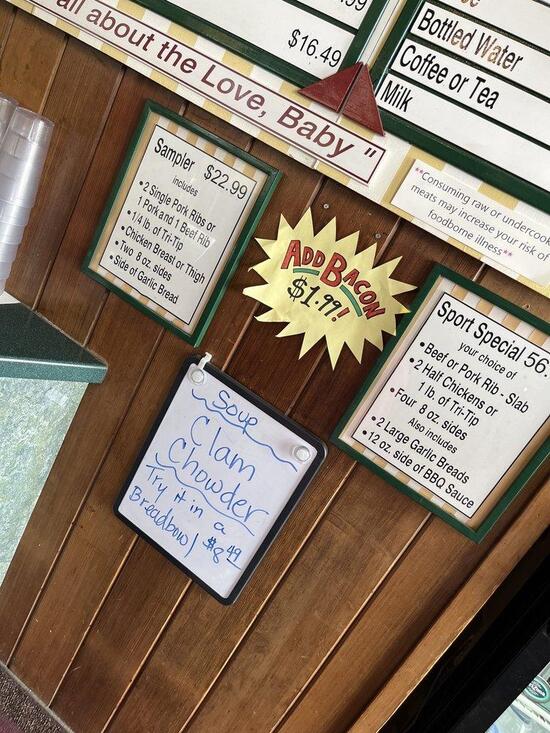 $16.49
all about the Love, Baby "
Bottled Water
Coffee or Tea
Milk
**Consuming raw or undercook
meats may increase your risk of
foodborne illness**
Sampler $22.99
includes
• 2 Single Pork Ribs or
1 Pork and 1 Beef Rib
• 1/4 lb. of Tri-Tip
• Chicken Breast or Thigh
• Two 8 oz. sides
• Side of Garlic Bread
ADD BACON
$1.99!
Sport Special 56.
your choice of
• Beef or Pork Rib - Slab
• 2 Half Chickens or
1 lb. of Tri-Tip
• Four 8 oz. sides
Also includes
• 2 Large Garlic Breads
• 12 oz. side of BBQ Sauce
Soup
Clam
Chowder
Try it in a
Breadbowl $8.49